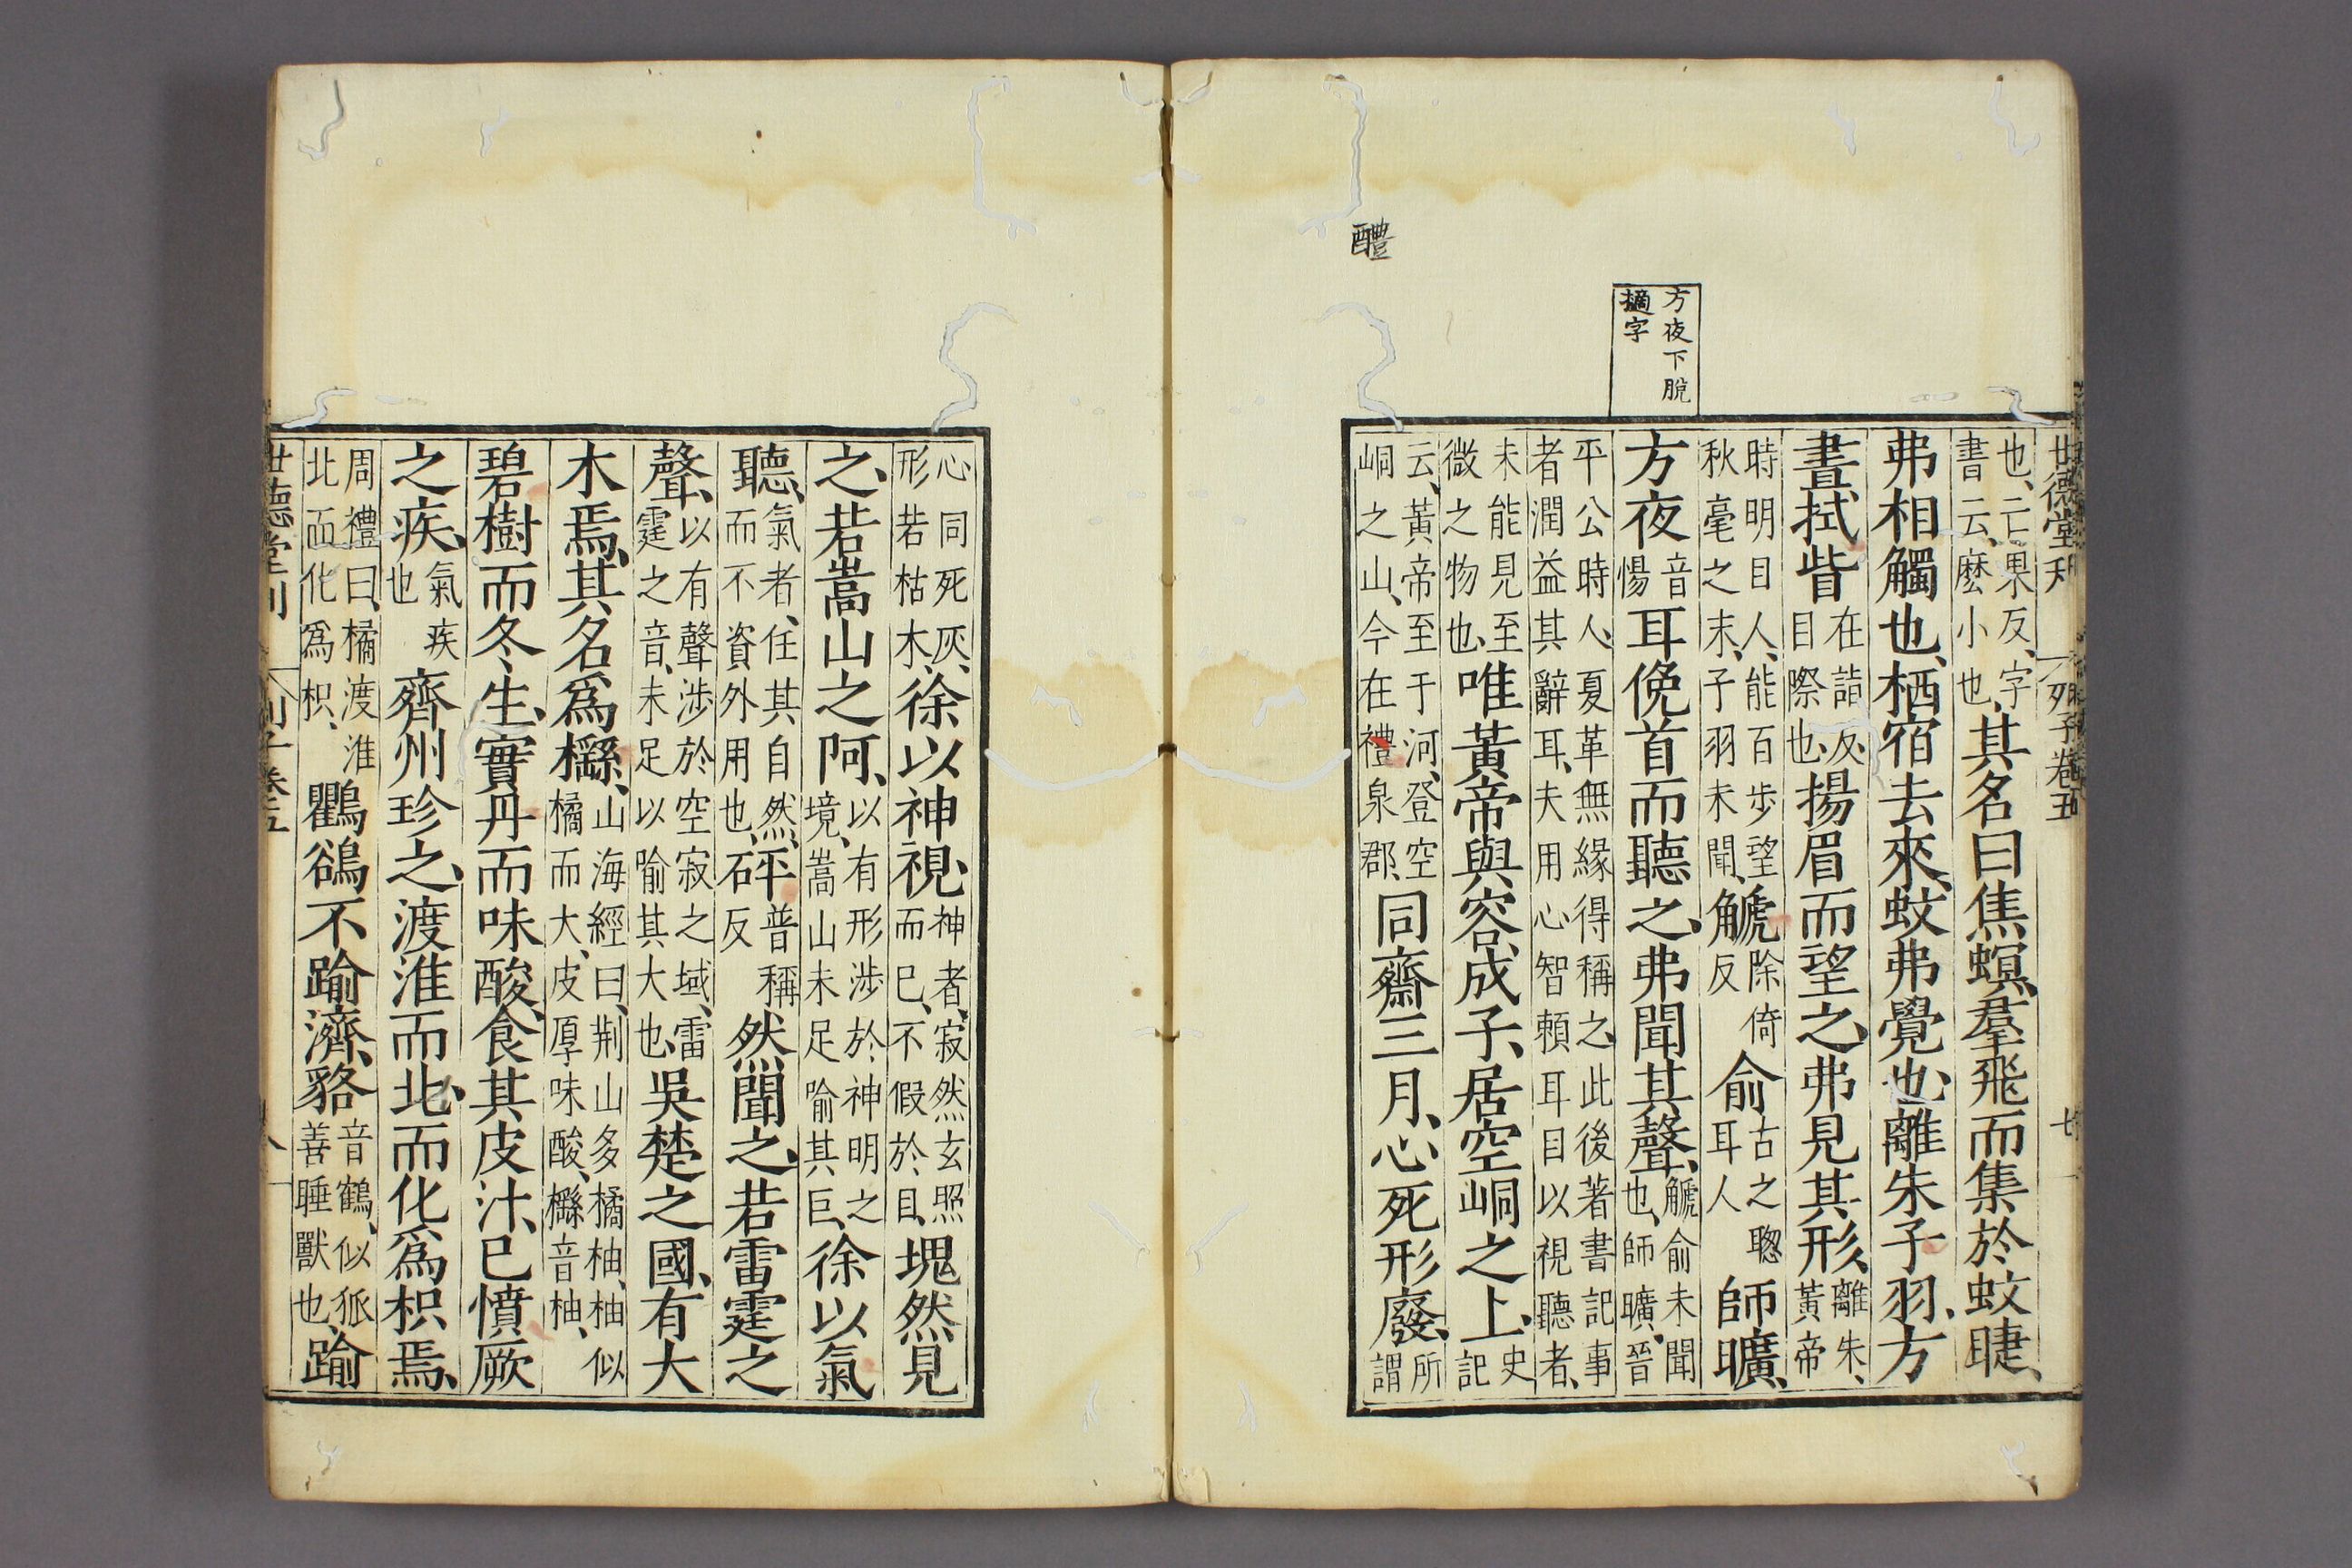 醴
方夜下脫
擿字
世德堂刊 列子卷五 七
也、亡果反、字
書云、麼小也、
其名曰焦螟、羣飛而集於蚊睫、
弗相觸也、栖宿去來、蚊弗覺也、離朱子羽、方
晝拭眥
在詣反
目際也、
揚眉而望之、弗見其形、
離朱、
黃帝
時明目人、能百步望
秋毫之末、子羽未聞、
䚦
除倚
反
俞
古之聦
耳人
師曠、
方夜
音
惕
耳俛首而聽之、弗聞其聲、
䚦俞未聞
也、師曠、晉
平公時人、夏革無緣得稱之、此後著書記事
者潤益其辭耳、夫用心智賴耳目以視聽者、
未能見至
微之物也、
唯黃帝與容成子、居空峒之上、
史
記
云、黃帝至于河、登空
峒之山、今在禮泉郡、
同齋三月、心死形廢、
所
謂
心同死灰、
形若枯木、
徐以神視、
神者、寂然玄照
而已、不假於目、
塊然見
之、若嵩山之阿、
以有形涉於神明之
境、嵩山未足喻其巨、
徐以氣
聽、
氣者、任其自然、
而不資外用也、
砰
普稱
反
然聞之、若雷霆之
聲、
以有聲涉於空寂之域、雷
霆之音、未足以喻其大也、
吳楚之國、有大
木焉、其名爲櫾、
山海經曰、荆山多橘柚、柚似
橘而大、皮厚味酸、櫾音柚、
碧樹而冬、生、實丹而味酸、食其皮汁、已憤厥
之疾、
氣疾
也
齊州珍之、渡淮而北、而化爲枳焉、
周禮曰、橘渡淮
北而化爲枳、
鸜鵒不踰濟、貉
音鶴、似狐
善睡獸也、
踰
世德堂刊 列子卷五 八